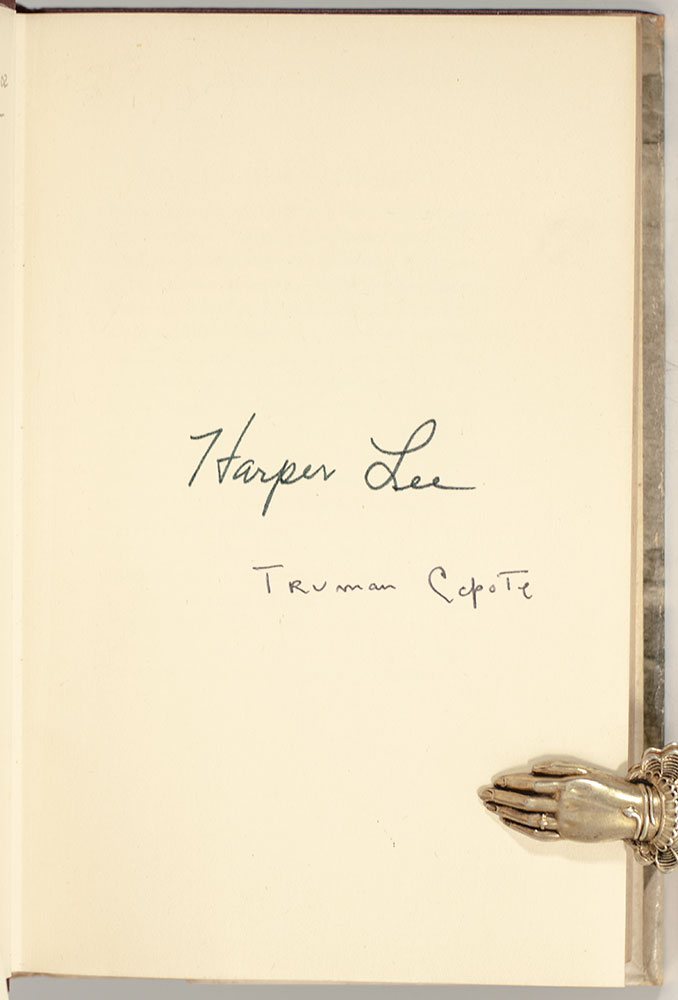 Harper Lee
Truman Capote